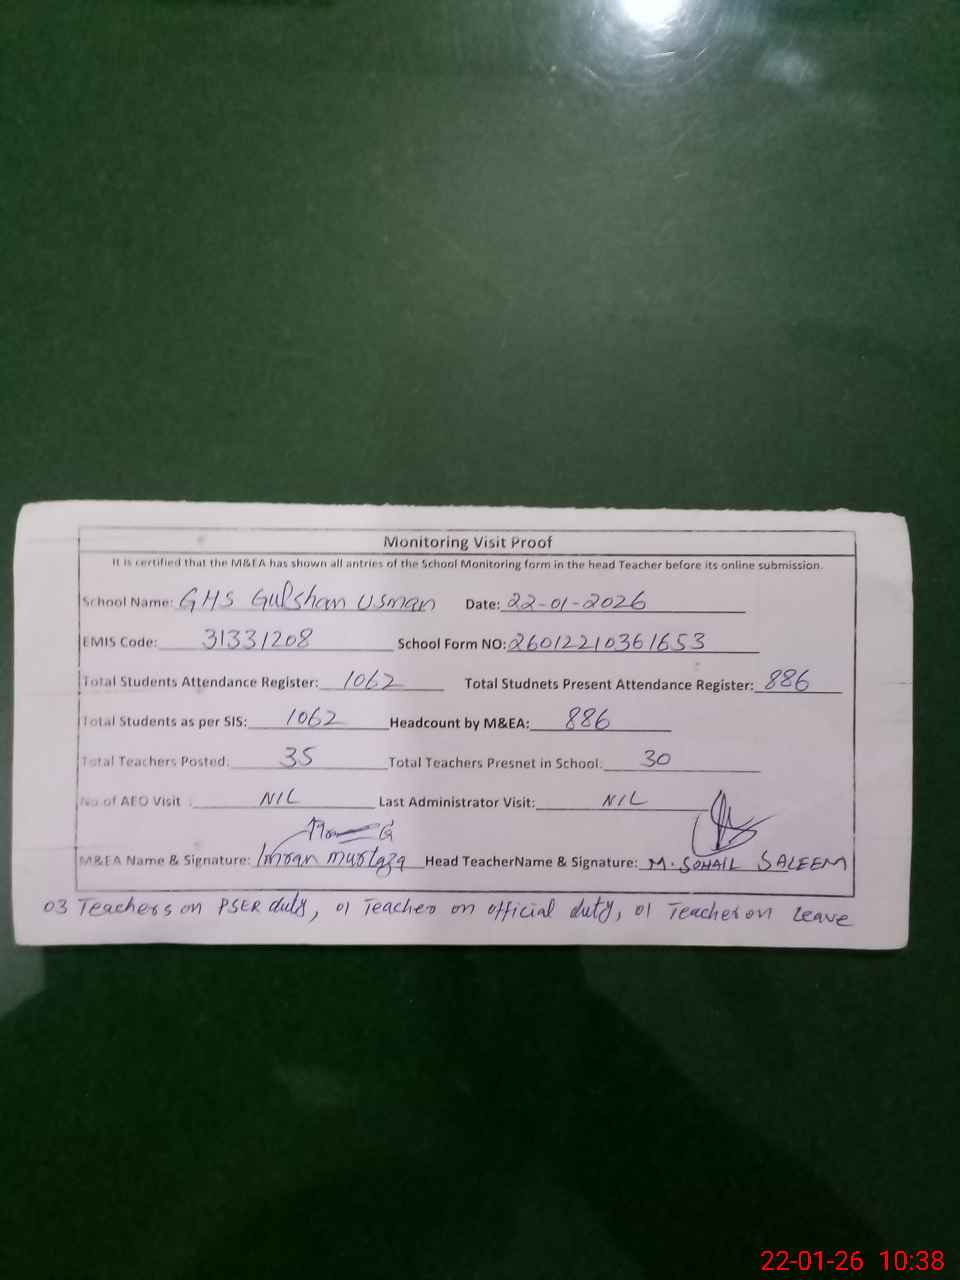 Monitoring Visit Proof
It is certified that the M&EA has shown all antries of the School Monitoring form in the head Teacher before its online submission.
School Name: GHS Gulshan Usman Date: 22-01-2026
EMIS Code: 31331208 School Form NO: 26012210361653
Total Students Attendance Register: 1062 Total Studnets Present Attendance Register: 886
Total Students as per SIS: 1062 Headcount by M&EA: 886
Total Teachers Posted: 35 Total Teachers Presnet in School: 30
No of AEO Visit : NIL Last Administrator Visit: NIL
M&EA Name & Signature: Imran murtaza Head TeacherName & Signature: M. SOHAIL SALEEM
03 Teachers on PSER duty, 01 Teacher on official duty, 01 Teacher on Leave
22-01-26 10:38